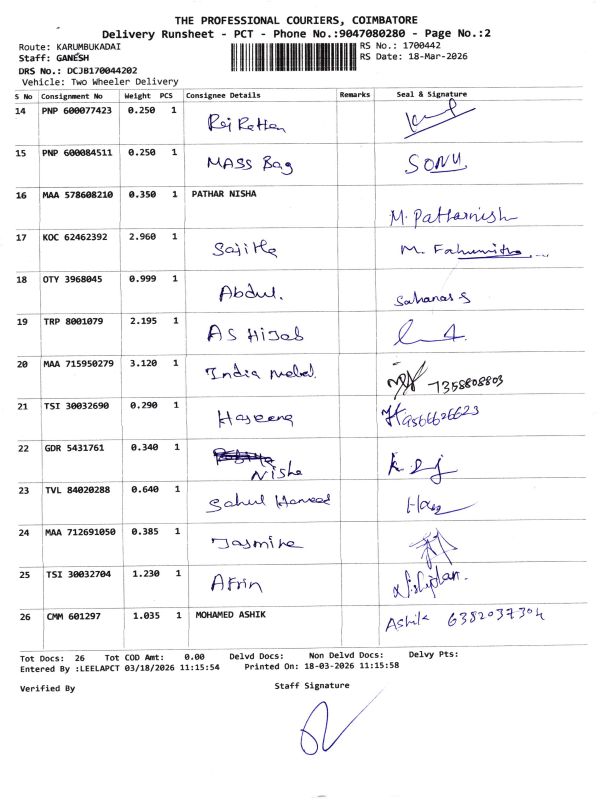 THE PROFESSIONAL COURIERS, COIMBATORE
Delivery Runsheet - PCT - Phone No.:9047080280 - Page No.:2
Route: KARUMBUKADAI RS No.: 1700442
Staff: GANESH RS Date: 18-Mar-2026
DRS No.: DCJB170044202
Vehicle: Two Wheeler Delivery
S No Consignment No Weight PCS Consignee Details Remarks Seal & Signature
14 PNP 600077423 0.250 1 Raj Rattan
15 PNP 600084511 0.250 1 MASS Bag SONU
16 MAA 578608210 0.350 1 PATHAR NISHA M. Patharnish
17 KOC 62462392 2.960 1 Sajitha M.
18 OTY 3968045 0.999 1 Abdul. Sahanas S
19 TRP 8001079 2.195 1 AS Hijab
20 MAA 715950279 3.120 1 India 7358808803
21 TSI 30032690 0.290 1 Haseena 9566626623
22 GDR 5431761 0.340 1 Nisha
23 TVL 84020288 0.640 1 Sahul Hameed
24 MAA 712691050 0.385 1 Jasmine
25 TSI 30032704 1.230 1 Afrin
26 CMM 601297 1.035 1 MOHAMED ASHIK Ashik 6382037304
Tot Docs: 26 Tot COD Amt: 0.00 Delvd Docs: Non Delvd Docs: Delvy Pts:
Entered By :LEELAPCT 03/18/2026 11:15:54 Printed On: 18-03-2026 11:15:58
Verified By Staff Signature